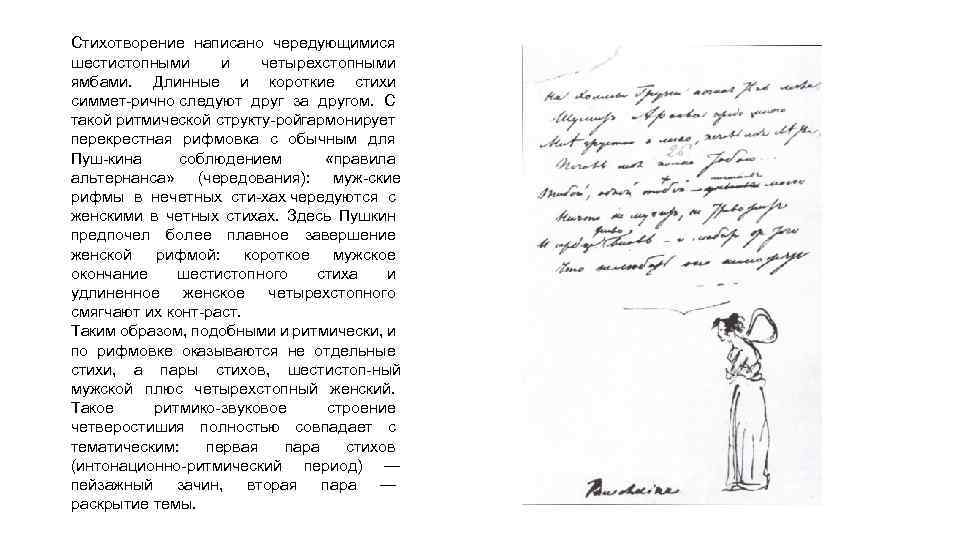 Стихотворение написано чередующимися
шестистопными и четырехстопными
ямбами. Длинные и короткие стихи
симмет-рично следуют друг за другом. С
такой ритмической структу-ройгармонирует
перекрестная рифмовка с обычным для
Пуш-кина соблюдением «правила
альтернанса» (чередования): муж-ские
рифмы в нечетных сти-хах чередуются с
женскими в четных стихах. Здесь Пушкин
предпочел более плавное завершение
женской рифмой: короткое мужское
окончание шестистопного стиха и
удлиненное женское четырехстопного
смягчают их конт-раст.
Таким образом, подобными и ритмически, и
по рифмовке оказываются не отдельные
стихи, а пары стихов, шестистоп-ный
мужской плюс четырехстопный женский.
Такое ритмико-звуковое строение
четверостишия полностью совпадает с
тематическим: первая пара стихов
(интонационно-ритмический период) —
пейзажный зачин, вторая пара —
раскрытие темы.
На холмы Грузии
Шумит Арагва предо мною
Мне грустно и легко, печаль моя
Печаль моя полна тобою
Тобой, одной тобой
Ничто не мучит, не тревожит
И вновь и любит от того
Что не любить оно не может